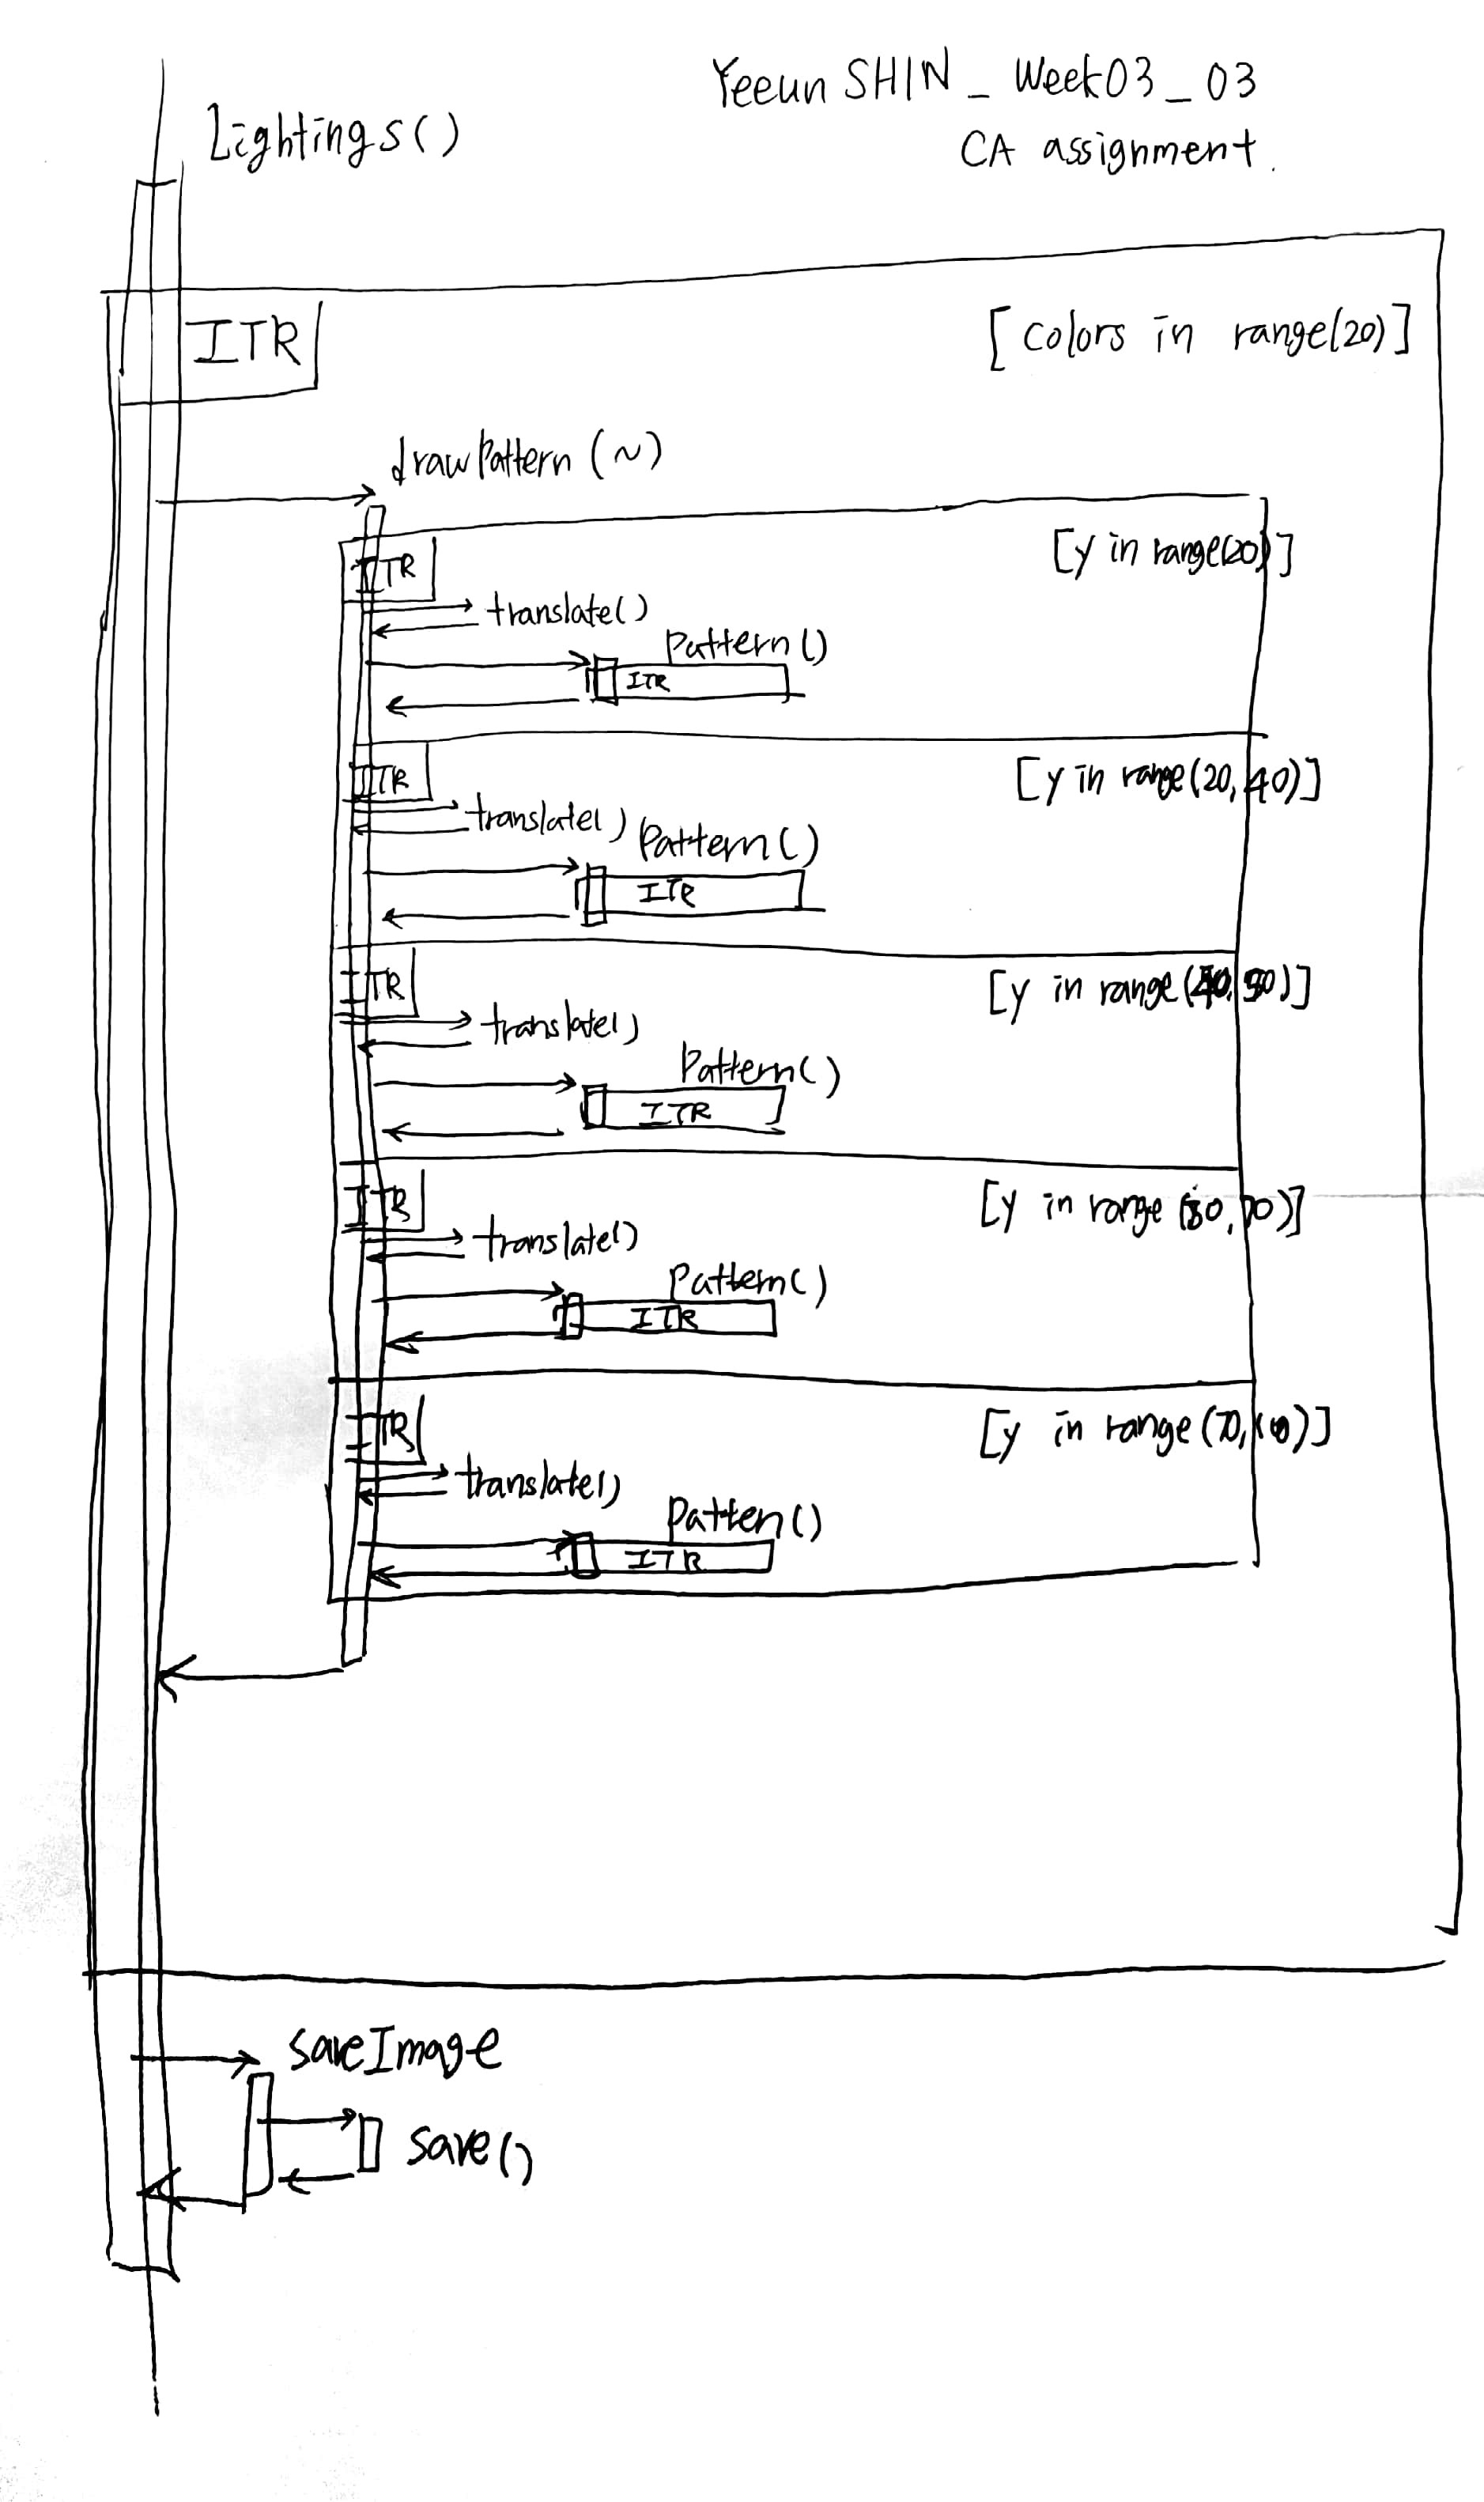 Yeeun SHIN _ Week03_03
CA assignment.
Lightings()
ITR
[ colors in range(20)]
drawPattern (~)
[y in range(20)]
ITR
translate()
Pattern()
ITR
[y in range(20,40)]
ITR
translate()
Pattern()
ITR
[y in range(40,50)]
ITR
translate()
Pattern()
ITR
[y in range (50,70)]
ITR
translate()
Pattern()
ITR
[y in range(70,
ITR
translate()
Patten()
ITR
saveImage
save()